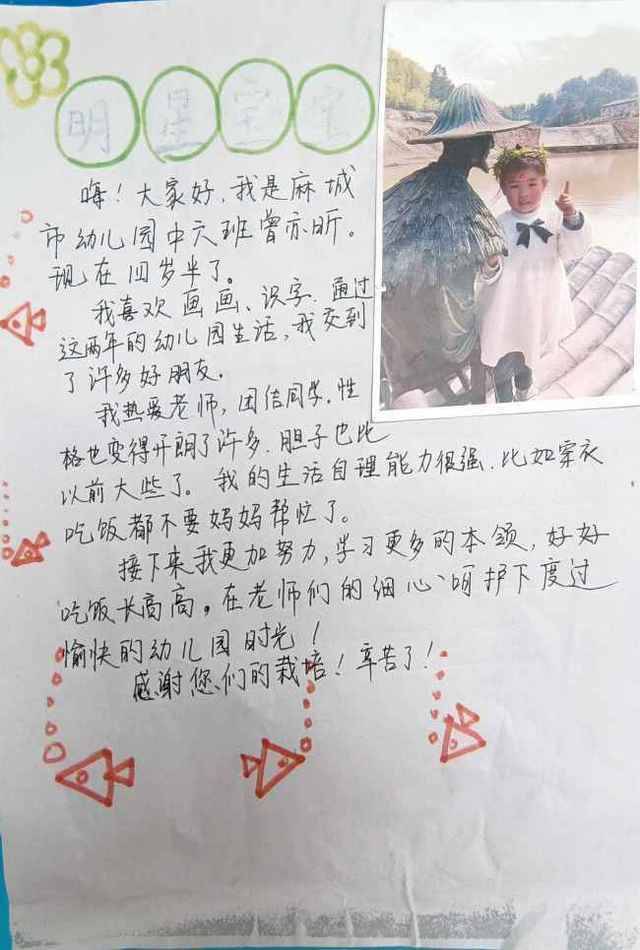 明星宝宝
嗨！大家好，我是麻城
市幼儿园中六班曾亦昕。
现在四岁半了。
我喜欢画画、识字.通过
这两年的幼儿园生活，我交到
了许多好朋友.
我热爱老师，团结同学.性
格也变得开朗了许多.胆子也比
以前大些了。我的生活自理能力很强.比如穿衣
吃饭都不要妈妈帮忙了。
接下来我更加努力，学习更多的本领，好好
吃饭长高高。在老师们的细心呵护下度过
愉快的幼儿园时光！
感谢您们的栽培！辛苦了！